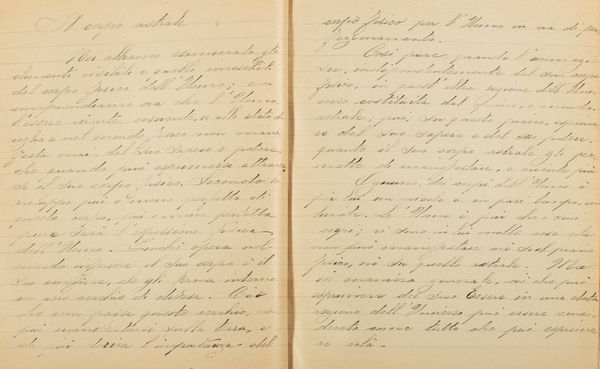 Il corpo astrale
Noi abbiamo esaminato gli
elementi visibili e
del corpo fisico dell'Uomo;
comprendiamo ora che l'Uomo,
l'essere vivente cosciente, allo stato di
veglia nel mondo fisico non mani
festa mai del suo Sapere e potere
che quanto può esprimere attraver
so il suo corpo fisico. Secondo lo
sviluppo più o meno perfetto di
questo corpo, più o meno perfetta
pure sarà l'espressione fisica
dell'Uomo. opera nel
mondo inferiore il suo corpo è il
suo confine, che gli forma intorno
un vero cerchio di difesa. Ciò
che non passa questo cerchio, non
può manifestarsi su questa terra, e
di qui l'importanza del
corpo fisico per l'Uomo in via di
Così pure, quando l'uomo agi
sce, indipendentemente dal suo corpo
fisico, in quest'altra regione dell'Uni
verso costituita dal piano, o mondo
astrale; può, su questo piano, esprime
re del suo sapere e del suo potere,
quanto il suo corpo astrale gli per
mette di manifestare, e niente più.
Ognuno dei corpi dell'Uomo è
per lui un veicolo e in pari tempo, un
limite. L'Uomo è più che i suoi
vi sono in lui molte cose che
non può manifestare nè sul piano
fisico, nè su quello astrale. Ma
in maniera generale, ciò che può
esprimere del suo Essere in una data
regione dell'Universo può essere consi
derato come tutto che può esprime
re colà.